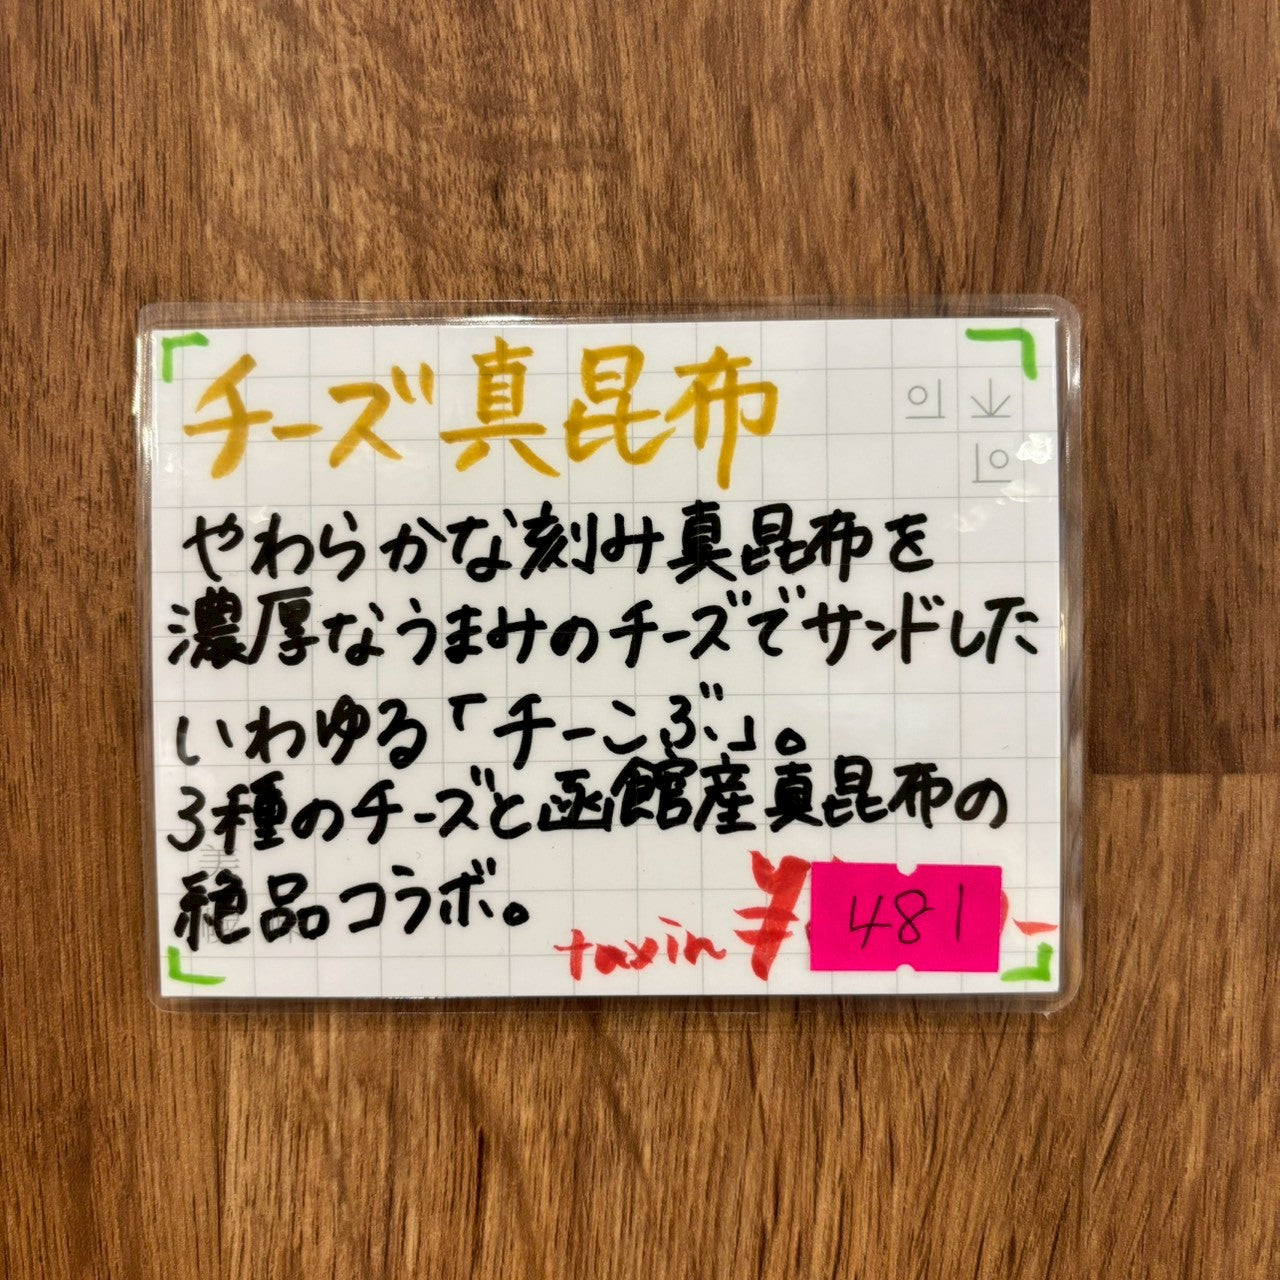 チーズ真昆布
やわらかな刻み真昆布を
濃厚なうまみのチーズでサンドした
いわゆる「チーこぶ」。
3種のチーズと函館産真昆布の
絶品コラボ。
taxin ¥481-